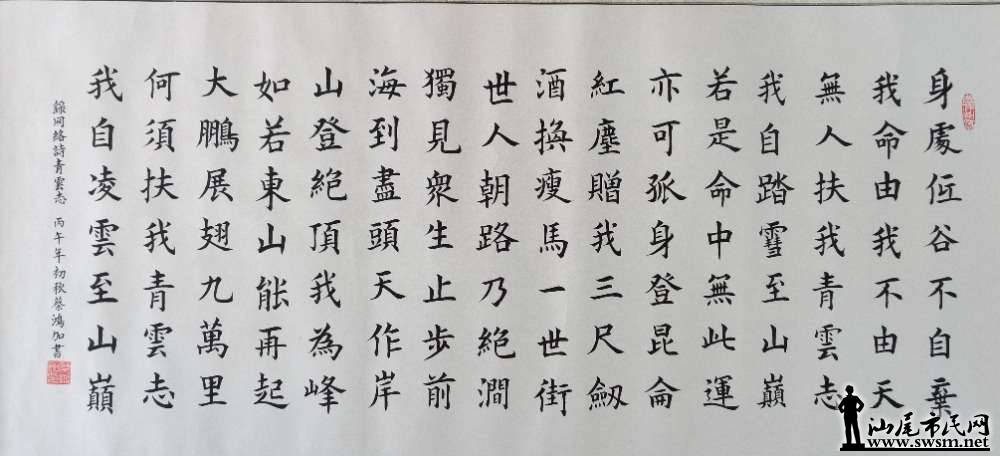 身處低谷不自棄
我命由我不由天
無人扶我青雲志
我自踏雪至山巔
若是命中無此運
亦可孤身登昆侖
紅塵贈我三尺劔
酒換瘦馬一世街
世人朝路乃絕澗
獨見衆生止步前
海到盡頭天作岸
山登絕頂我為峰
如若東山能再起
大鵬展翅九萬里
何須扶我青雲志
我自凌雲至山巔
錄网絡詩青雲志 丙午年初秋蔡鴻加書
汕尾市民网
www.swsm.net